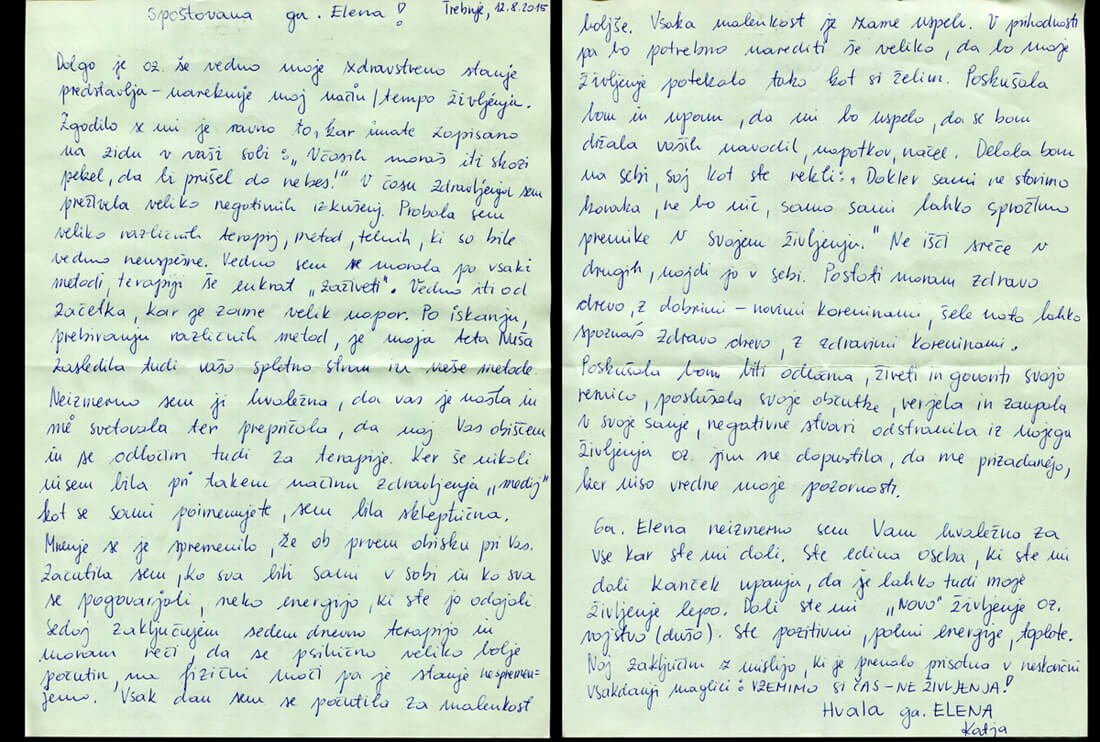 Spoštovana ga. Elena! Trebnje, 12.8.2015
Dolgo je oz. še vedno moje zdravstveno stanje
predstavlja - narekuje moj način/tempo življenja.
Zgodilo se mi je ravno to, kar imate zapisano
na zidu v vaši sobi: „Včasih moraš iti skozi
pekel, da bi prišel do nebes!" V času zdravljenja sem
preživela veliko negativnih izkušenj. Probala sem
veliko različnih terapij, metod, tehnik, ki so bile
vedno neuspešne. Vedno sem se morala po vsaki
metodi, terapiji še enkrat „zaživeti". Vedno iti od
začetka, kar je zame velik napor. Po iskanju,
prebiranju različnih metod, je moja teta Nuša
zasledila tudi vašo spletno stran in vaše metode.
Neizmerno sem ji hvaležna, da vas je našla in
me svetovala ter prepričala, da naj Vas obiščem
in se odločim tudi za terapije. Ker še nikoli
nisem bila pri takem načinu zdravljenja „medij"
kot se sami poimenujete, sem bila skleptična.
Mnenje se je spremenilo, že ob prvem obisku pri Vas.
Začutila sem, ko sva bili sami v sobi in ko sva
se pogovarjali, neko energijo, ki ste jo odajali.
Sedaj zaključujem sedem dnevno terapijo in
moram reči da se psihično veliko bolje
počutim, na fizični moči pa je stanje nespremen-
jeno. Vsak dan sem se počutila za malenkost
boljše. Vsaka malenkost je zame uspeh. V prihodnosti
pa bo potrebno narediti še veliko, da bo moje
življenje potekalo tako kot si želim. Poskušala
bom in upam, da mi bo uspelo, da se bom
držala vaših navodil, napotkov, načel. Delala bom
na sebi, saj kot ste rekli: „Dokler sami ne storimo
koraka, ne bo nič, samo sami lahko sprožimo
premike v svojem življenju." Ne išči sreče v
drugih, najdi jo v sebi. Postati moram zdravo
drevo, z dobrimi - novimi koreninami, šele nato lahko
spoznaš zdravo drevo, z zdravimi koreninami.
Poskušala bom biti odločna, živeti in govoriti svojo
resnico, poslušala svoje občutke, verjela in zaupala
v svoje sanje, negativne stvari odstranila iz mojega
življenja oz. jim ne dopustila, da me prizadanejo,
ker niso vredne moje pozornosti.
Ga. Elena neizmerno sem Vam hvaležna za
vse kar ste mi dali. Ste edina oseba, ki ste mi
dali kanček upanja, da je lahko tudi moje
življenje lepo. Dali ste mi „Novo" življenje oz.
rojstvo (dušo). Ste pozitivni, polni energije, toplote.
Naj zaključim z mislijo, ki je premalo prisotna v neskončni
vsakdanji maglici: VZEMIMO SI ČAS - NE ŽIVLJENJA!
Hvala ga. ELENA
Katja